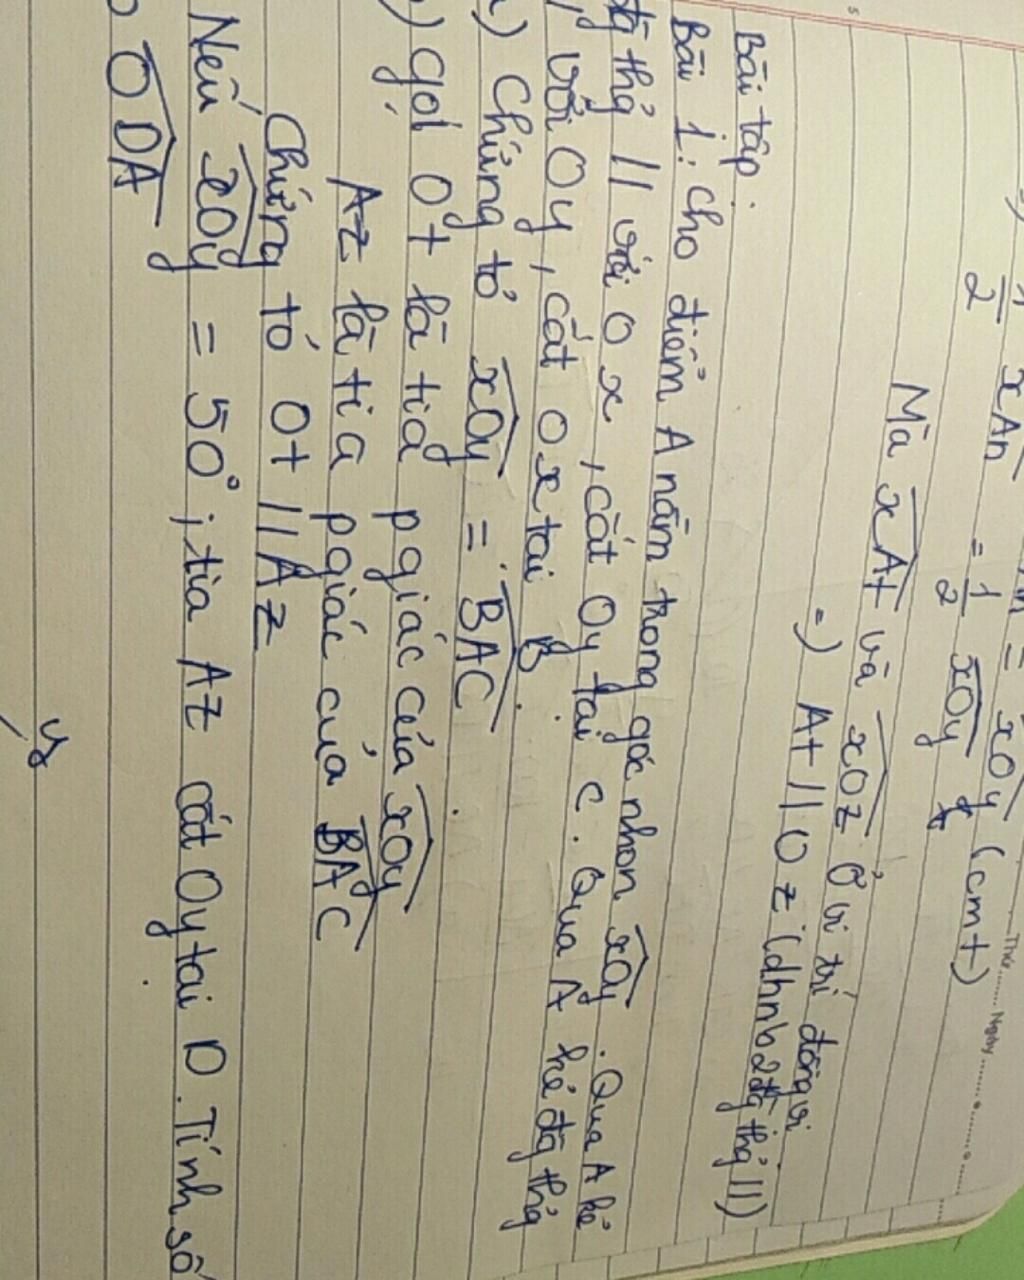 1/2 xAn = 1/2 xOy
= xOy (cmt)
Mà xAt và xOz ở vị trí đồng vị
=) At // Oz (dhnb 2 đg thg //)
Bài tập:
Bài 1: Cho điểm A nằm trong góc nhọn xOy. Qua A kẻ
đg thg // với Ox, cắt Oy tại C. Qua A kẻ đg thg
// với Oy, cắt Ox tại B.
a) Chứng tỏ xOy = BAC.
) gọi Ot là tia pgiác của xOy
Az là tia pgiác của BAC
Chứng tỏ Ot // Az
Nếu xOy = 50°; tia Az cắt Oy tại D. Tính số
ODA
y
Thứ ........ Ngày ........